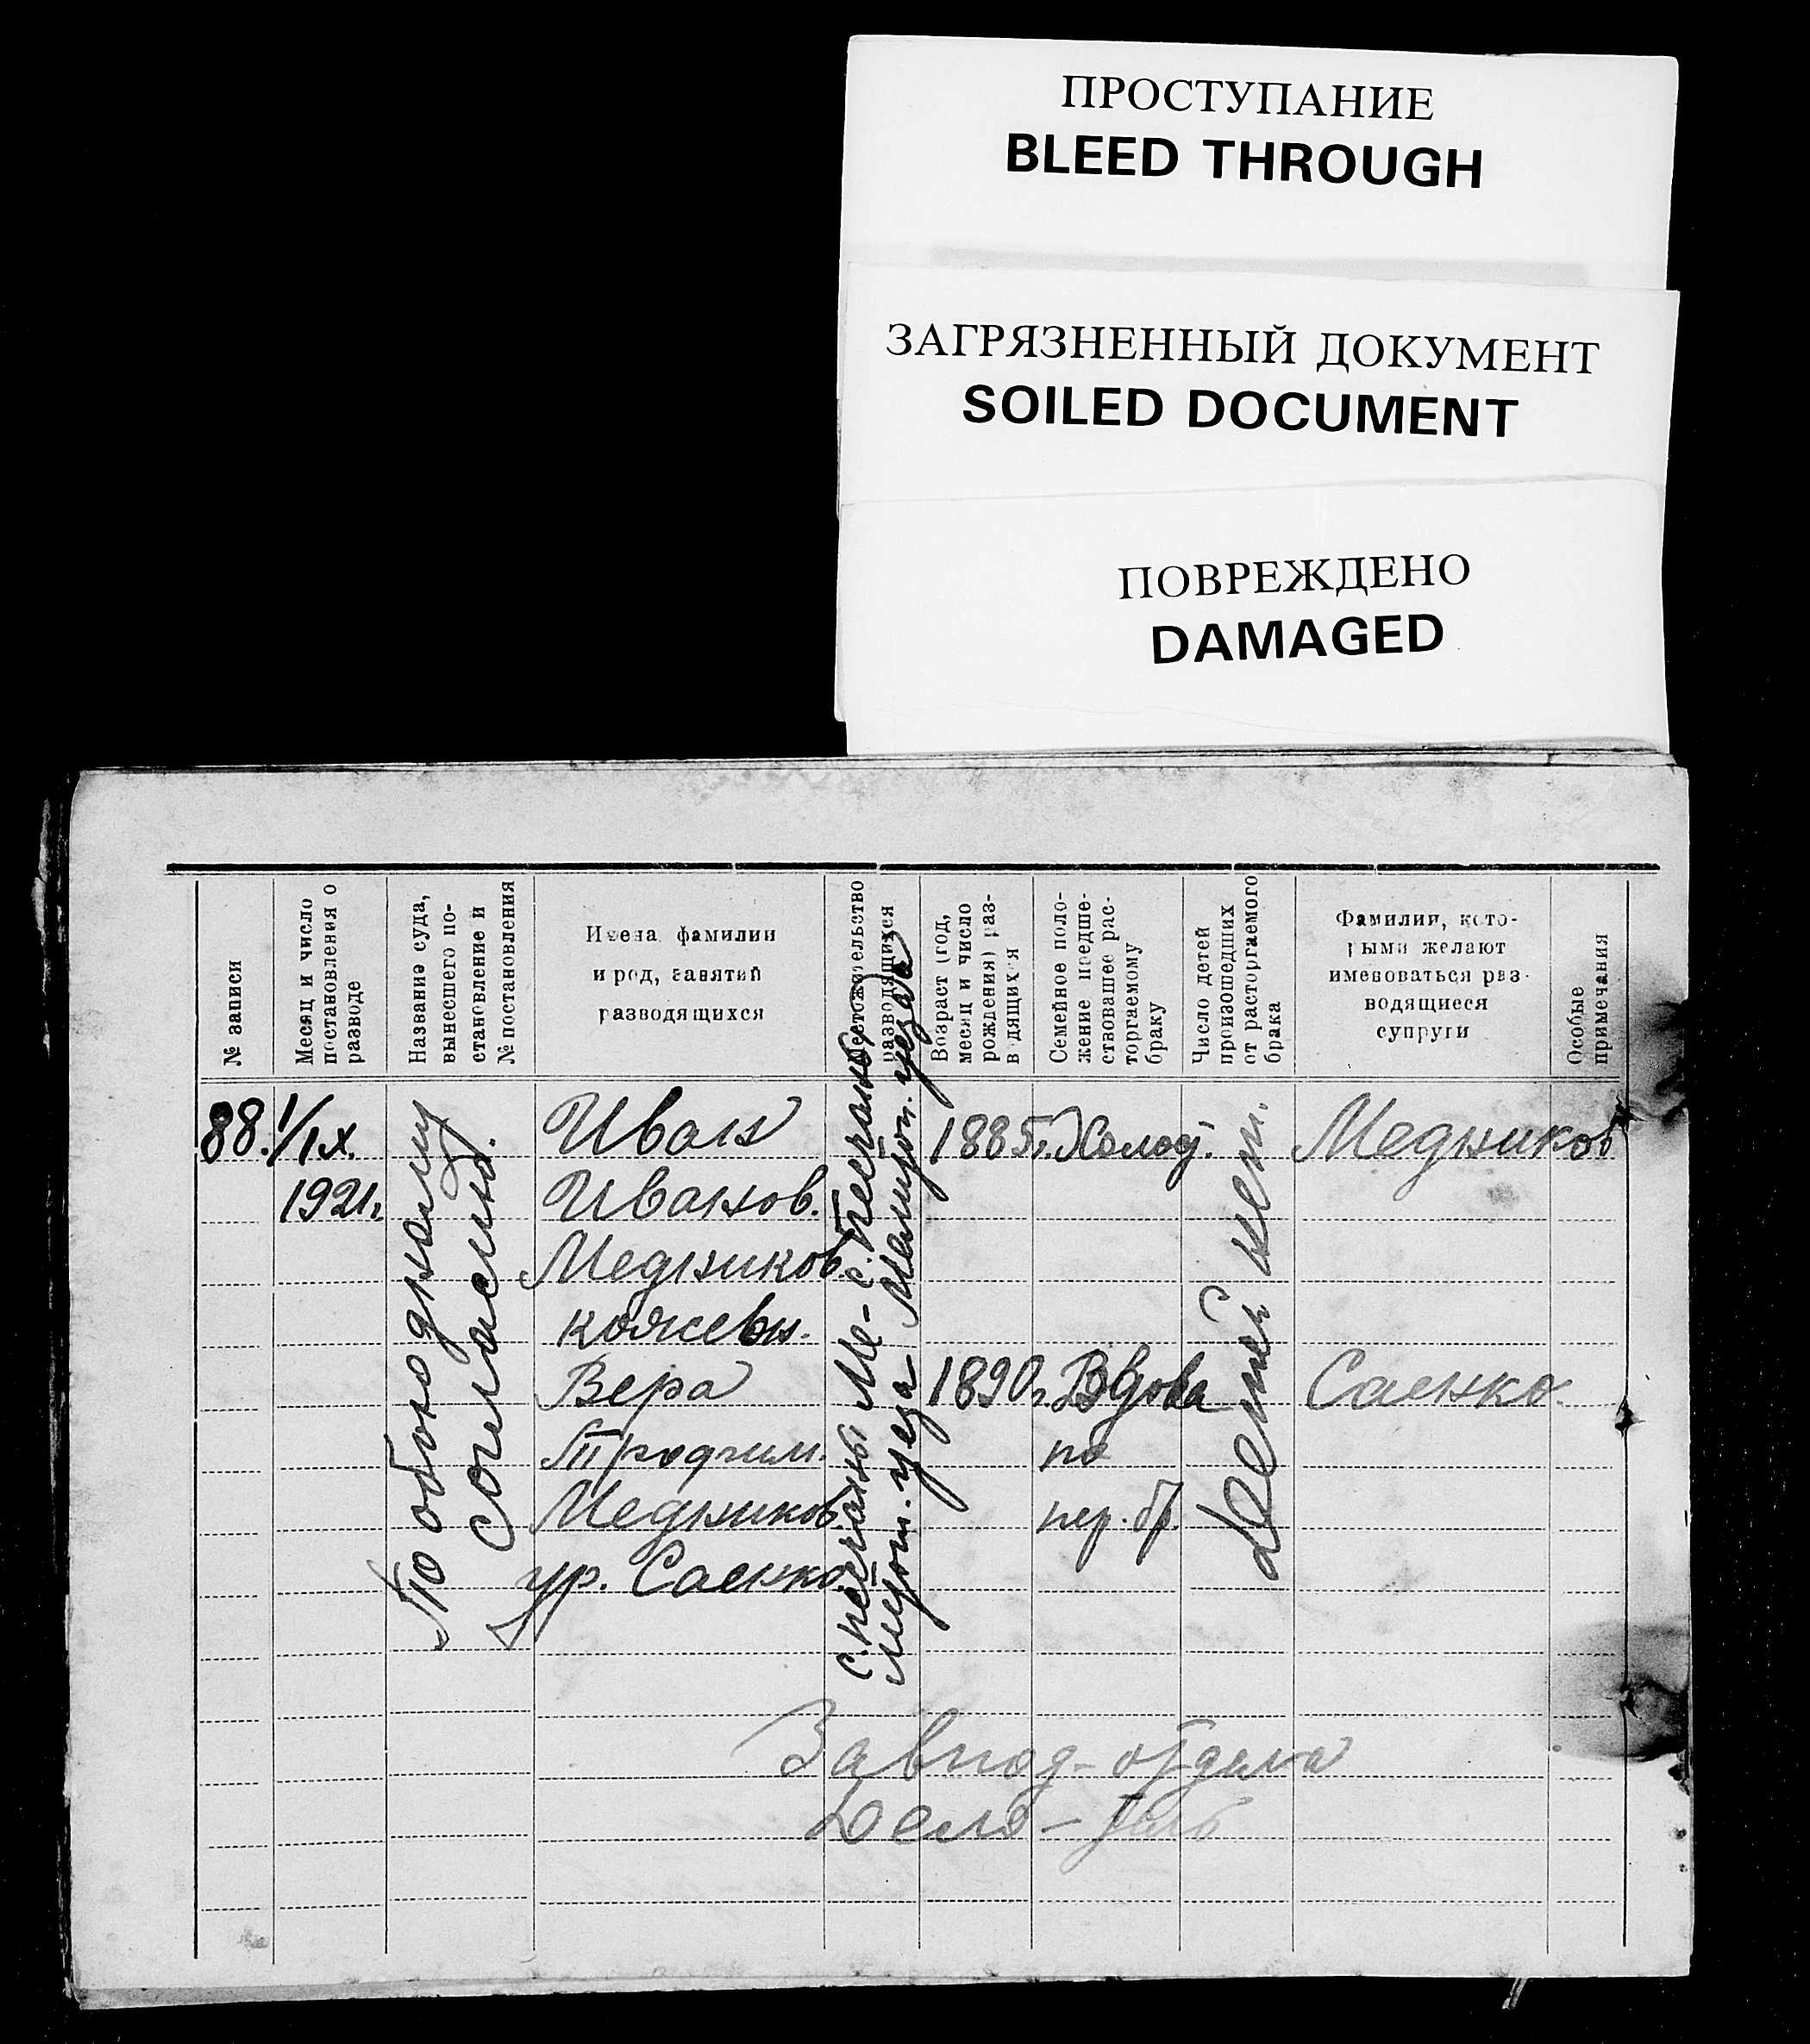 ПРОСТУПАНИЕ
BLEED THROUGH
ЗАГРЯЗНЕННЫЙ ДОКУМЕНТ
SOILED DOCUMENT
ПОВРЕЖДЕНО
DAMAGED
№ записи
Месяц и число
постановления о
разводе
Название суда,
вынесшего по-
становление и
№ постановления
Имена фамилии
и род, занятий
разводящихся
Местожительство
разводящихся
Возраст (год,
месяц и число
рождения) раз-
водящихся
Семейное поло-
жение предше-
ствовавшее рас-
торгаемому
браку
Число детей
происшедших
от расторгаемого
брака
Фамилии, кото-
рыми желают
именоваться раз-
водящиеся
супруги
Особые
примечания
88.
1/IX.
1921г.
По обоюдному
согласию.
Иван
Иванов.
Медников
кожевн.
с. Песчаное
Мелитоп. уезда
1885г.
Холост.
Детей нет.
Медников
Вера
Трофим.
Медников.
ур. Саенко
с. Песчаны Ме-
литоп. уезда
1890г.
Вдова
по
пер. бр.
Саенко.
Завпод-отдела
Дело-